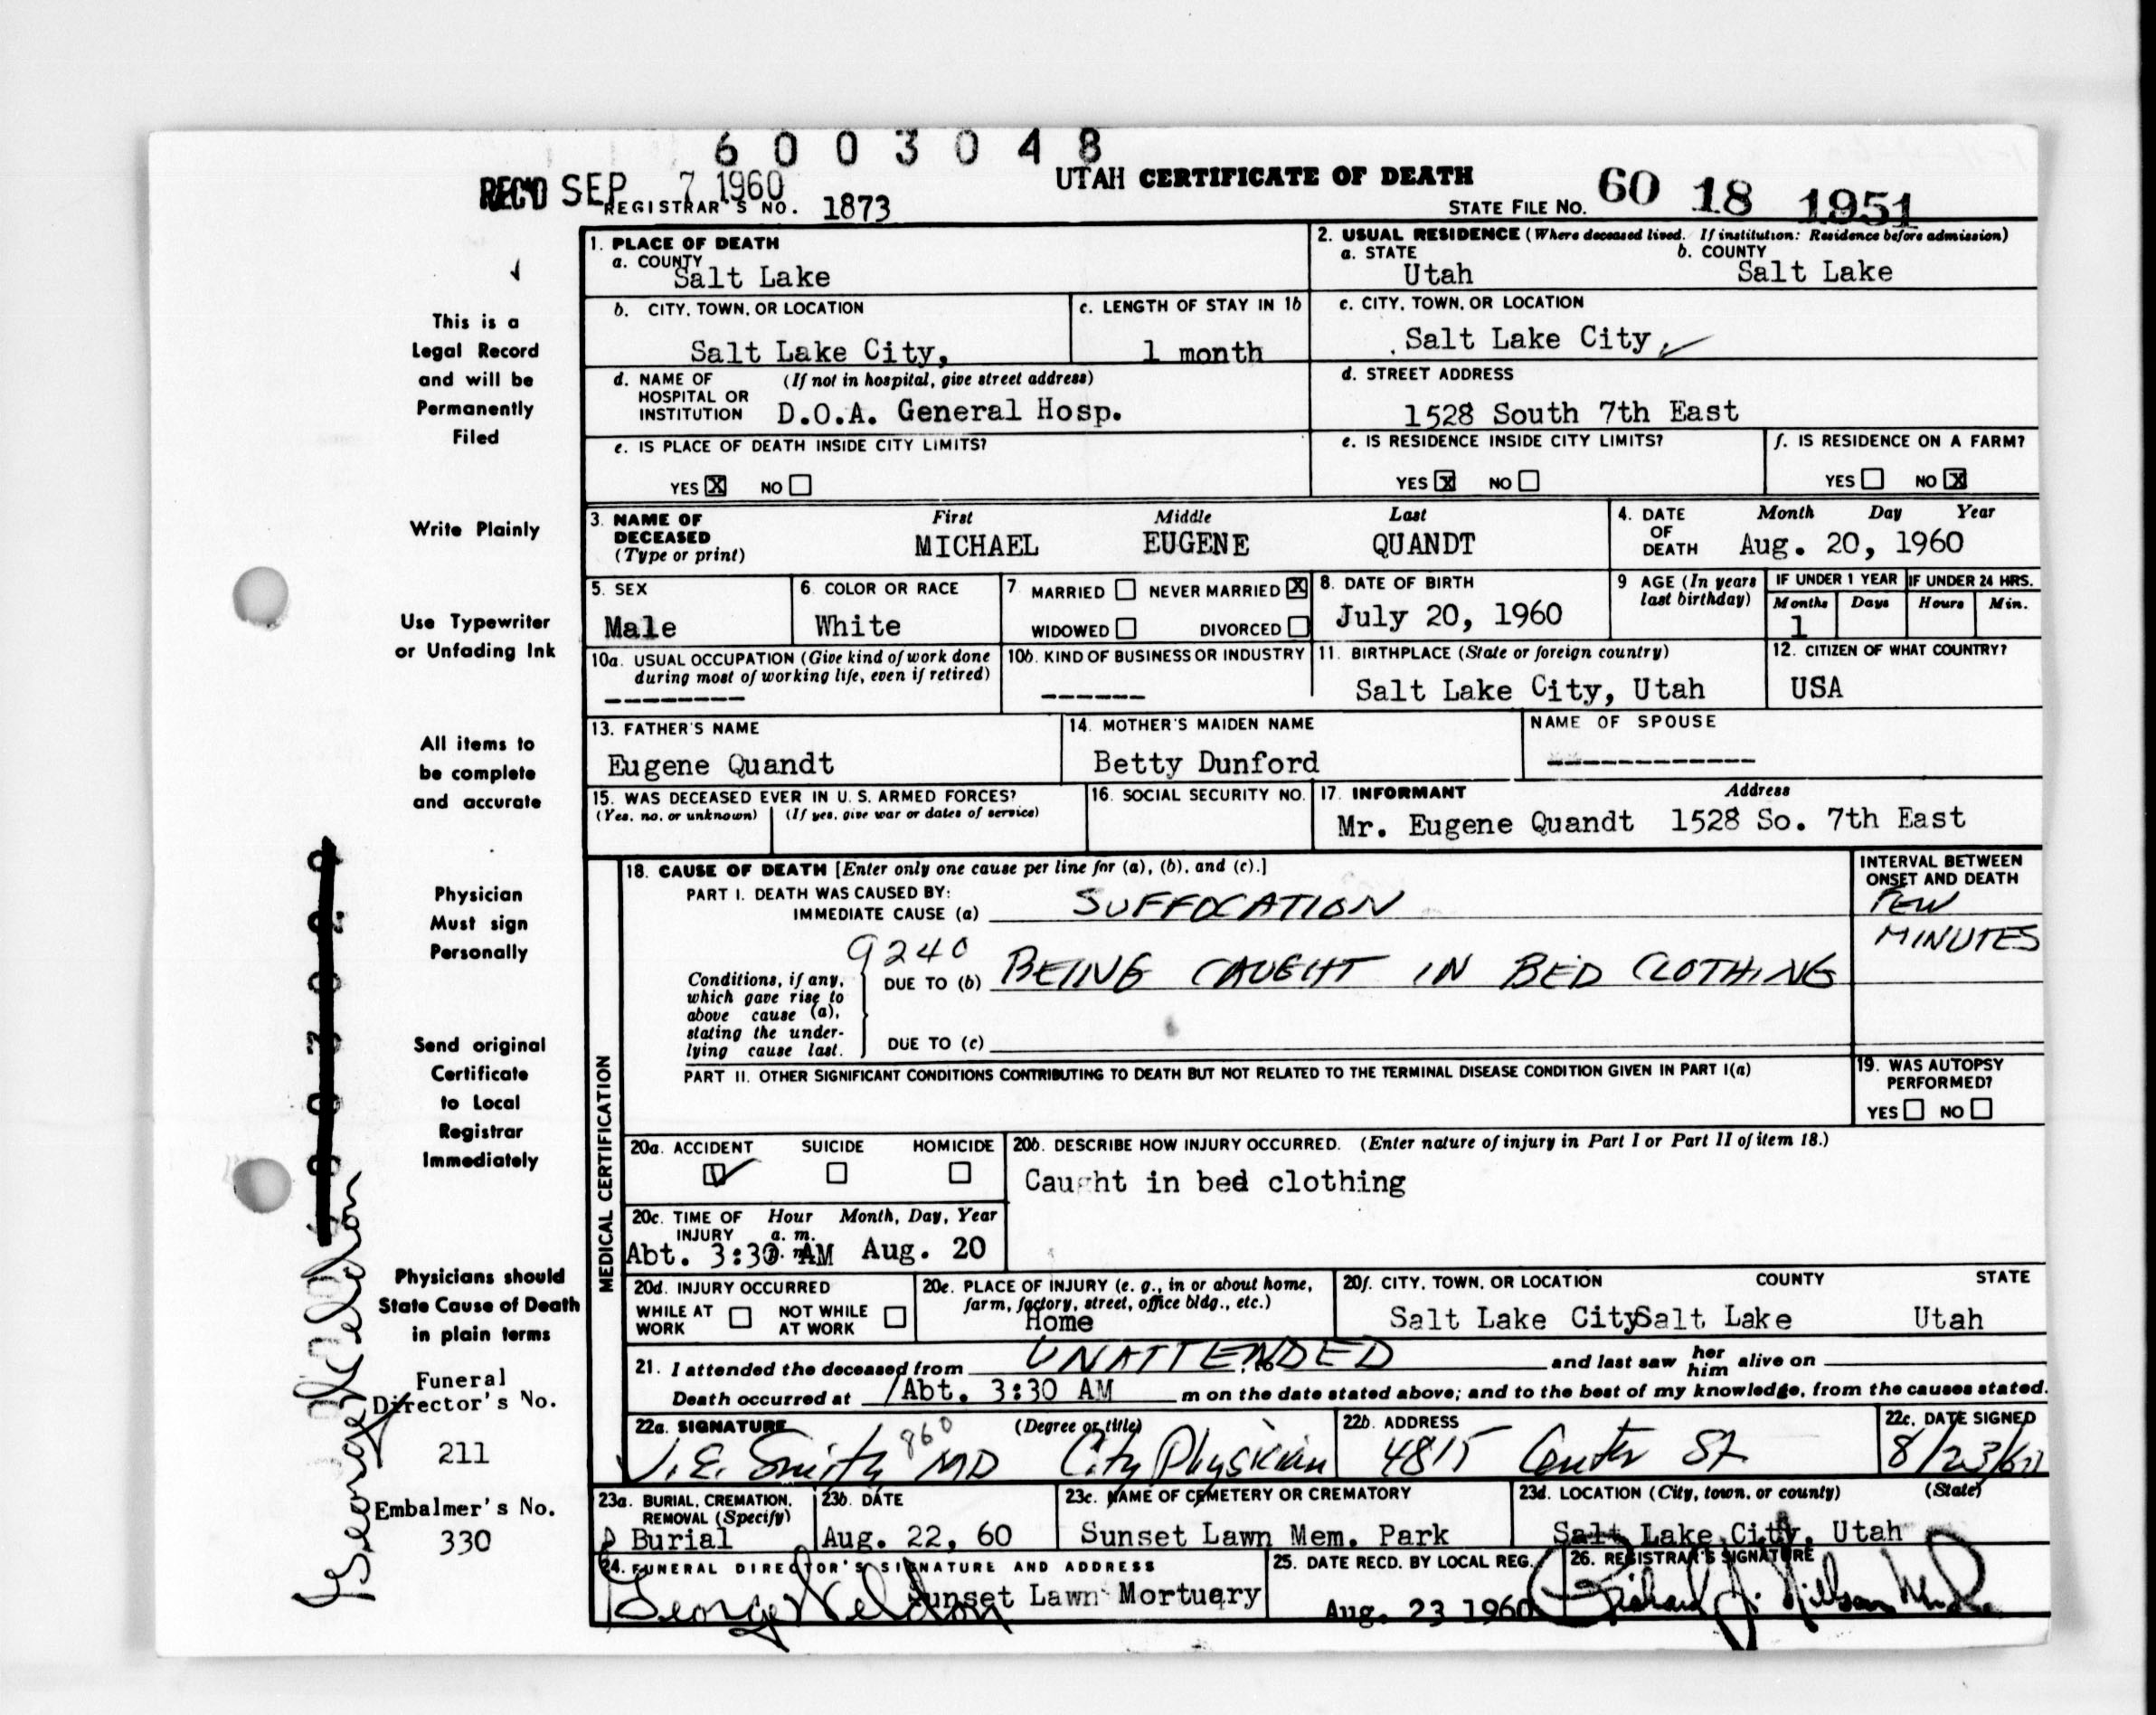 6 0 0 3 0 4 8
REC'D SEP 7 1960
REGISTRAR'S NO. 1873
UTAH CERTIFICATE OF DEATH
STATE FILE No. 60 18 1951
This is a
Legal Record
and will be
Permanently
Filed
Write Plainly
Use Typewriter
or Unfading Ink
All items to
be complete
and accurate
Physician
Must sign
Personally
Send original
Certificate
to Local
Registrar
Immediately
Physicians should
State Cause of Death
in plain terms
Funeral
Director's No.
211
Embalmer's No.
330
1. PLACE OF DEATH
a. COUNTY
Salt Lake
2. USUAL RESIDENCE (Where deceased lived. If institution: Residence before admission)
a. STATE b. COUNTY
Utah Salt Lake
b. CITY, TOWN, OR LOCATION
Salt Lake City,
c. LENGTH OF STAY IN 1b
1 month
c. CITY, TOWN, OR LOCATION
Salt Lake City,
d. NAME OF (If not in hospital, give street address)
HOSPITAL OR
INSTITUTION D.O.A. General Hosp.
d. STREET ADDRESS
1528 South 7th East
e. IS PLACE OF DEATH INSIDE CITY LIMITS?
YES X NO
e. IS RESIDENCE INSIDE CITY LIMITS?
YES X NO
f. IS RESIDENCE ON A FARM?
YES NO X
3. NAME OF DECEASED (Type or print)
First Middle Last
MICHAEL EUGENE QUANDT
4. DATE OF DEATH Month Day Year
Aug. 20, 1960
5. SEX
Male
6. COLOR OR RACE
White
7 MARRIED NEVER MARRIED X
WIDOWED DIVORCED
8. DATE OF BIRTH
July 20, 1960
9 AGE (In years last birthday)
IF UNDER 1 YEAR IF UNDER 24 HRS.
Months Days Hours Min.
1
10a. USUAL OCCUPATION (Give kind of work done
during most of working life, even if retired)
---------
10b. KIND OF BUSINESS OR INDUSTRY
------
11. BIRTHPLACE (State or foreign country)
Salt Lake City, Utah
12. CITIZEN OF WHAT COUNTRY?
USA
13. FATHER'S NAME
Eugene Quandt
14. MOTHER'S MAIDEN NAME
Betty Dunford
NAME OF SPOUSE
------------
15. WAS DECEASED EVER IN U. S. ARMED FORCES?
(Yes, no, or unknown) (If yes, give war or dates of service)
16. SOCIAL SECURITY NO.
17. INFORMANT Address
Mr. Eugene Quandt 1528 So. 7th East
MEDICAL CERTIFICATION
18. CAUSE OF DEATH [Enter only one cause per line for (a), (b), and (c).]
PART I. DEATH WAS CAUSED BY:
IMMEDIATE CAUSE (a) SUFFOCATION
INTERVAL BETWEEN
ONSET AND DEATH
FEW
MINUTES
9240
Conditions, if any,
which gave rise to
above cause (a),
stating the under-
lying cause last.
DUE TO (b) BEING CAUGHT IN BED CLOTHING
DUE TO (c)
PART II. OTHER SIGNIFICANT CONDITIONS CONTRIBUTING TO DEATH BUT NOT RELATED TO THE TERMINAL DISEASE CONDITION GIVEN IN PART I(a)
19. WAS AUTOPSY
PERFORMED?
YES NO
20a. ACCIDENT SUICIDE HOMICIDE
20b. DESCRIBE HOW INJURY OCCURRED. (Enter nature of injury in Part I or Part II of item 18.)
Caught in bed clothing
20c. TIME OF INJURY Hour Month, Day, Year
a. m.
Abt. 3:30 AM Aug. 20
20d. INJURY OCCURRED
WHILE AT WORK NOT WHILE AT WORK
20e. PLACE OF INJURY (e. g., in or about home,
farm, factory, street, office bldg., etc.)
Home
20f. CITY, TOWN, OR LOCATION COUNTY STATE
Salt Lake City Salt Lake Utah
21. I attended the deceased from UNATTENDED and last saw her him alive on
Death occurred at Abt. 3:30 AM m on the date stated above; and to the best of my knowledge, from the causes stated.
22a. SIGNATURE (Degree or title)
J. E. Smith 860 MD City Physician
22b. ADDRESS
4815 Center St
22c. DATE SIGNED
8/23/60
23a. BURIAL, CREMATION,
REMOVAL (Specify)
Burial
23b. DATE
Aug. 22, 60
23c. NAME OF CEMETERY OR CREMATORY
Sunset Lawn Mem. Park
23d. LOCATION (City, town, or county) (State)
Salt Lake City, Utah
24. FUNERAL DIRECTOR'S SIGNATURE AND ADDRESS
Sunset Lawn Mortuary
25. DATE RECD. BY LOCAL REG.
Aug. 23 1960
26. REGISTRAR'S SIGNATURE